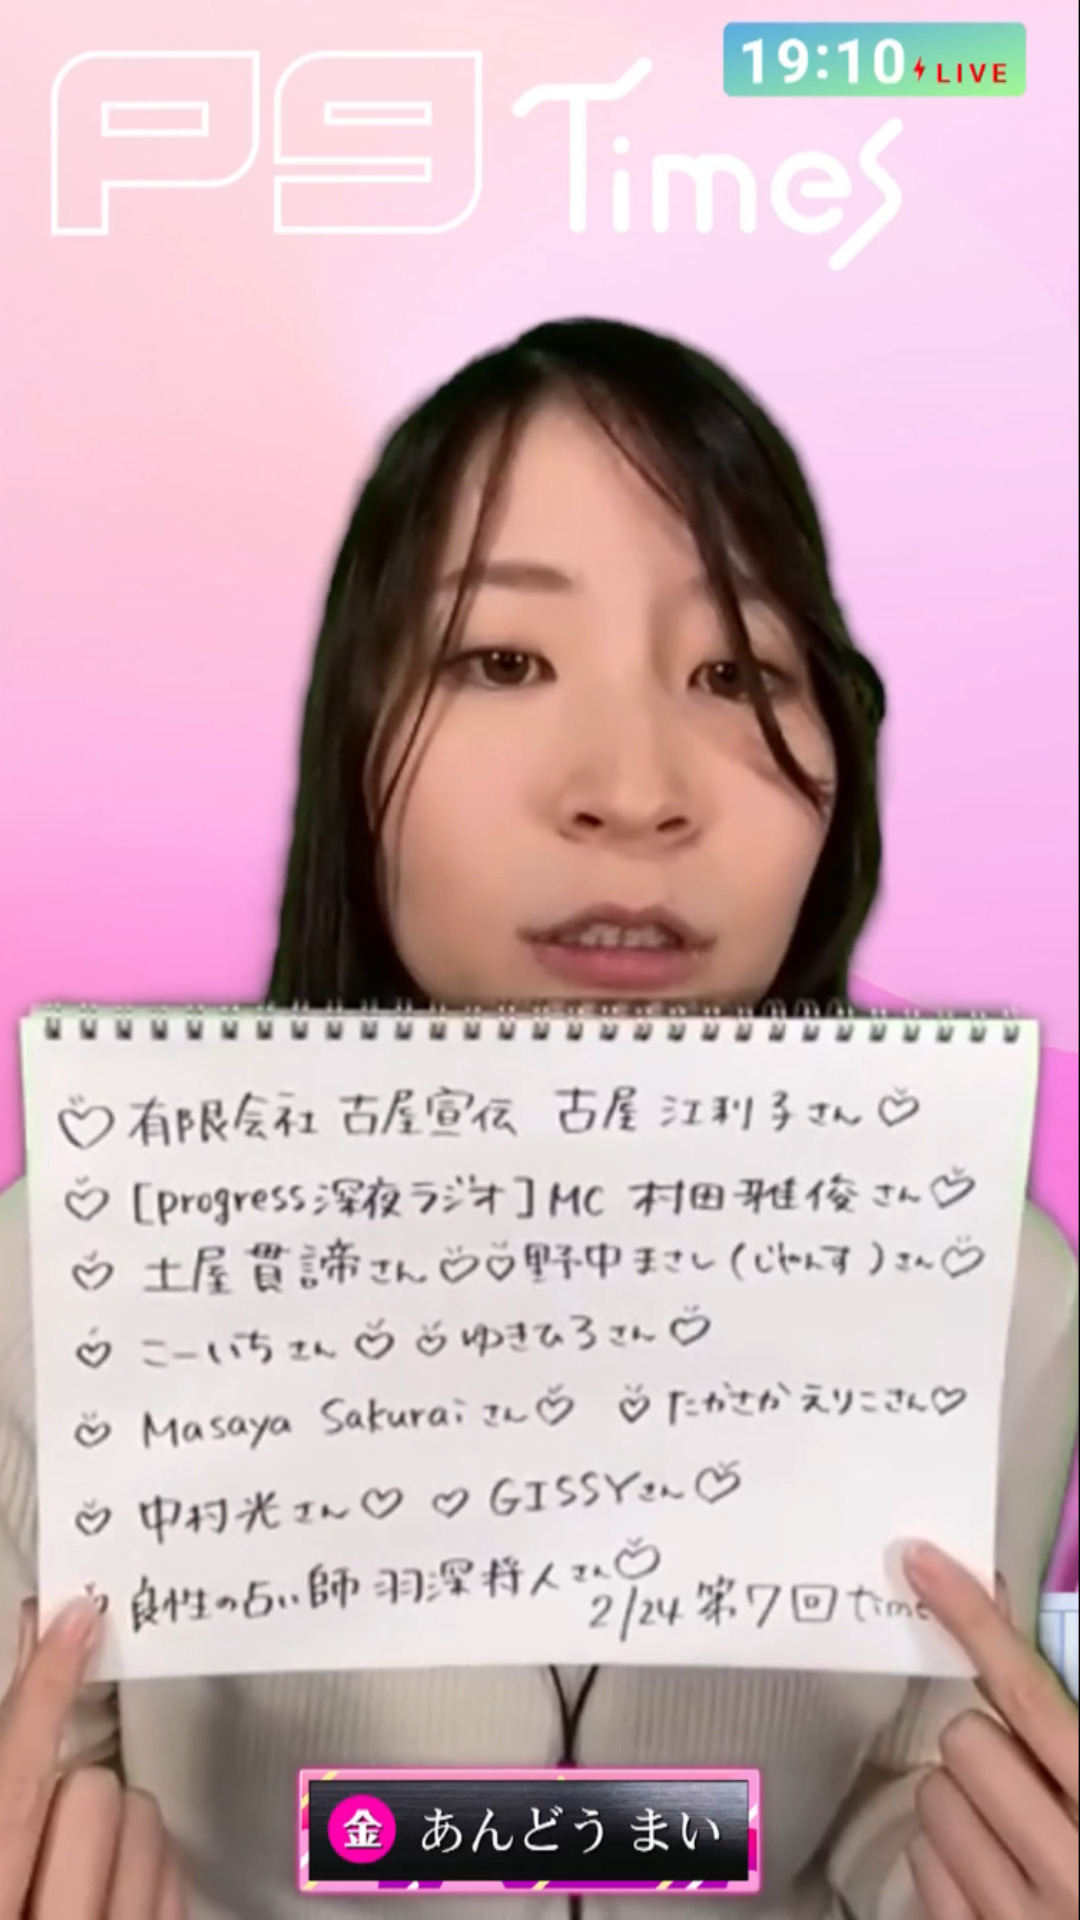 19:10 LIVE
P9 Times
有限会社 古屋宣伝 古屋 江利子さん
[progress深夜ラジオ]MC 村田雅俊さん
土屋貫諦さん 野中まさし(じゃんす)さん
こーいちさん ゆきひろさん
Masaya Sakuraiさん たかさかえりこさん
中村光さん GISSYさん
良性の占い師 羽深将人さん
2/24 第7回 time
金 あんどう まい